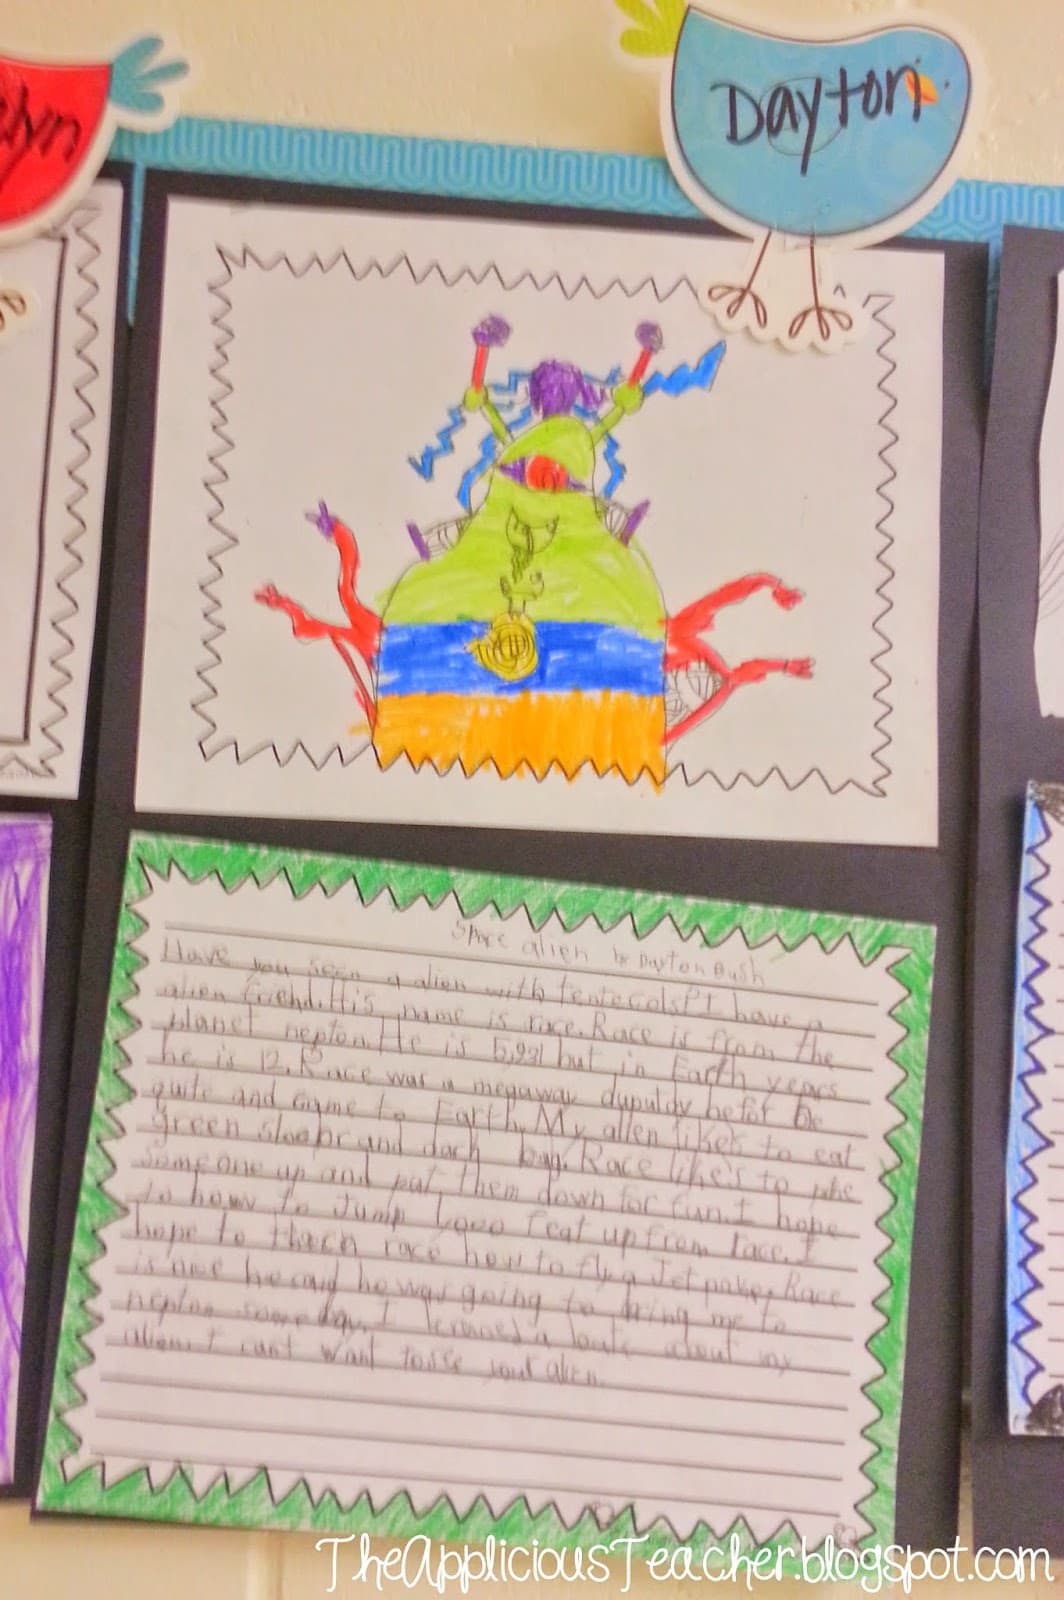 elyn
Dayton
Space alien by Dayton Bush
Have you seen a alien with tentecals? I have a
alien friend. His name is race. Race is from the
planet nepton. He is 5,921 but in Earth years
he is 12. Race was a megawav befor be
quite and came to Earth. My alien likes to eat
green and bug. Race like's to
someone up and put them down for fun. I hope
to how to jump feat up from race. I
hope to race how to fly a Jet Race
is nice he said he was going to bring me to
nepton someday. I lerned a about my
alien. I cant want to see your alien.
TheAppliciousTeacher.blogspot.com